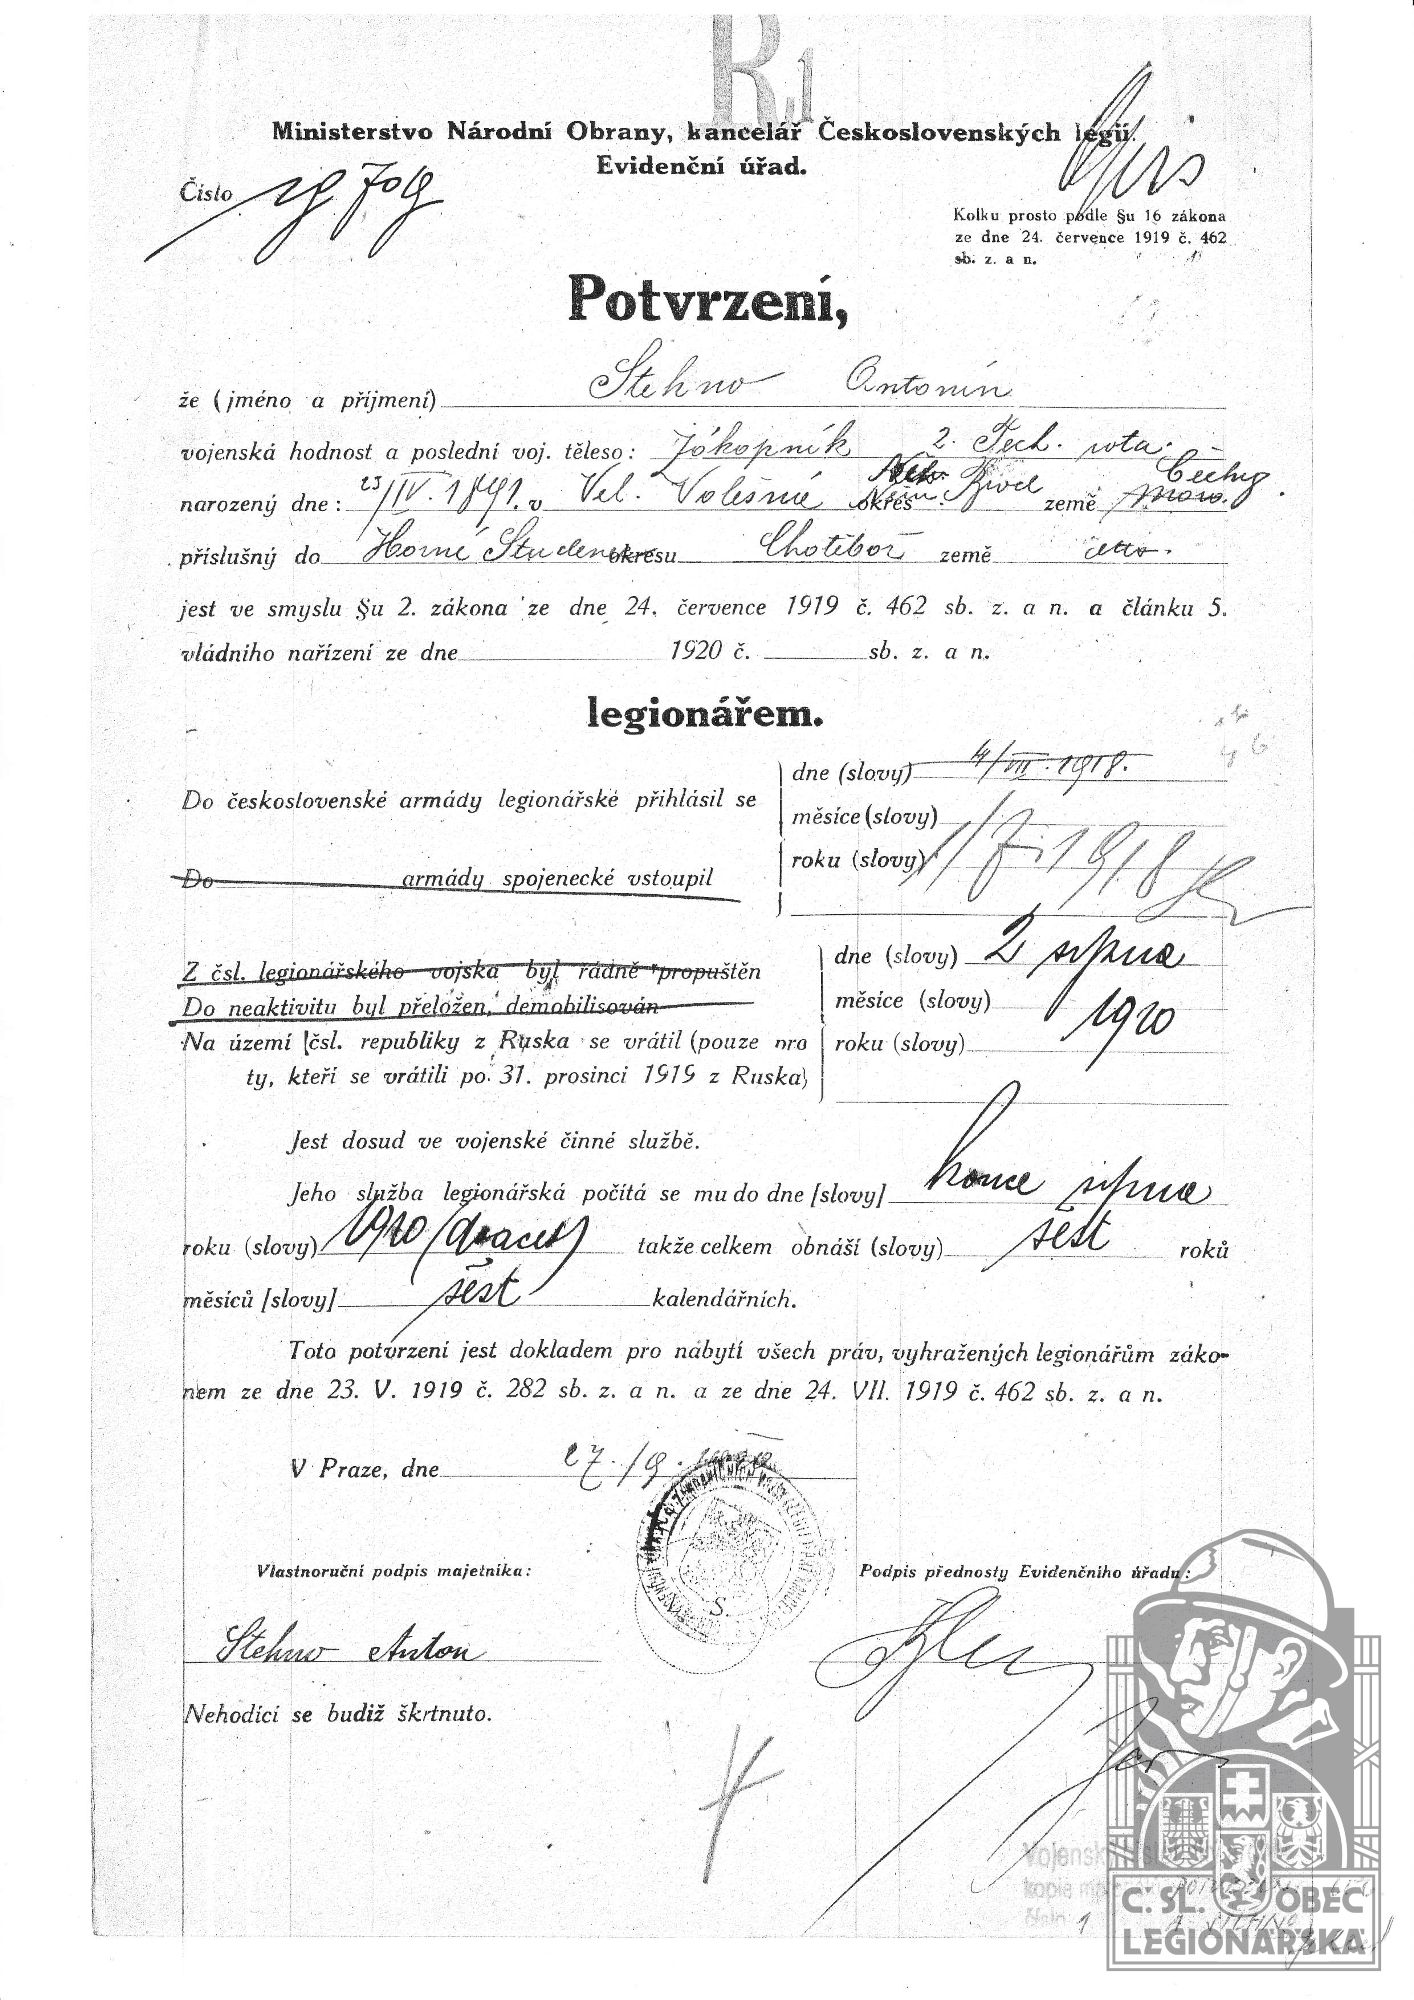 R.1
Ministerstvo Národní Obrany, kancelář Československých legií.
Evidenční úřad.
Číslo
Kolku prosto podle §u 16 zákona
ze dne 24. července 1919 č. 462
sb. z. a n.
Potvrzení,
že (jméno a příjmení) Stehno Antonín
vojenská hodnost a poslední voj. těleso: 2. Tech. rota.
narozený dne: 23/IV. 1891. v Vel. Volešná okres Brod země Čechy.
příslušný do Horné Studene okresu Chotěboř země detto.
jest ve smyslu §u 2. zákona ze dne 24. července 1919 č. 462 sb. z. a n. a článku 5.
vládního nařízení ze dne 1920 č. sb. z. a n.
legionářem.
Do československé armády legionářské přihlásil se
Do armády spojenecké vstoupil
dne (slovy) 4/VII. 1918.
měsíce (slovy)
roku (slovy) 1/7i 1918
Z čsl. legionářského vojska byl řádně propuštěn
Do neaktivitu byl přeložen, demobilisován
Na území čsl. republiky z Ruska se vrátil (pouze pro
ty, kteří se vrátili po 31. prosinci 1919 z Ruska)
dne (slovy) 2 srpna
měsíce (slovy) 1920
roku (slovy)
Jest dosud ve vojenské činné službě.
Jeho služba legionářská počítá se mu do dne [slovy] konce srpna
roku (slovy) 1920 (dvacet) takže celkem obnáší (slovy) šest roků
měsíců [slovy] šest kalendářních.
Toto potvrzení jest dokladem pro nabytí všech práv, vyhražených legionářům záko-
nem ze dne 23. V. 1919 č. 282 sb. z. a n. a ze dne 24. VII. 1919 č. 462 sb. z. a n.
V Praze, dne 27./9.
Vlastnoruční podpis majetníka:
Podpis přednosty Evidenčního úřadu:
S.
Stehno Anton
Nehodící se budiž škrtnuto.
Vojensk
kopie
číslo 1
Č. SL. OBEC
LEGIONÁŘSKÁ